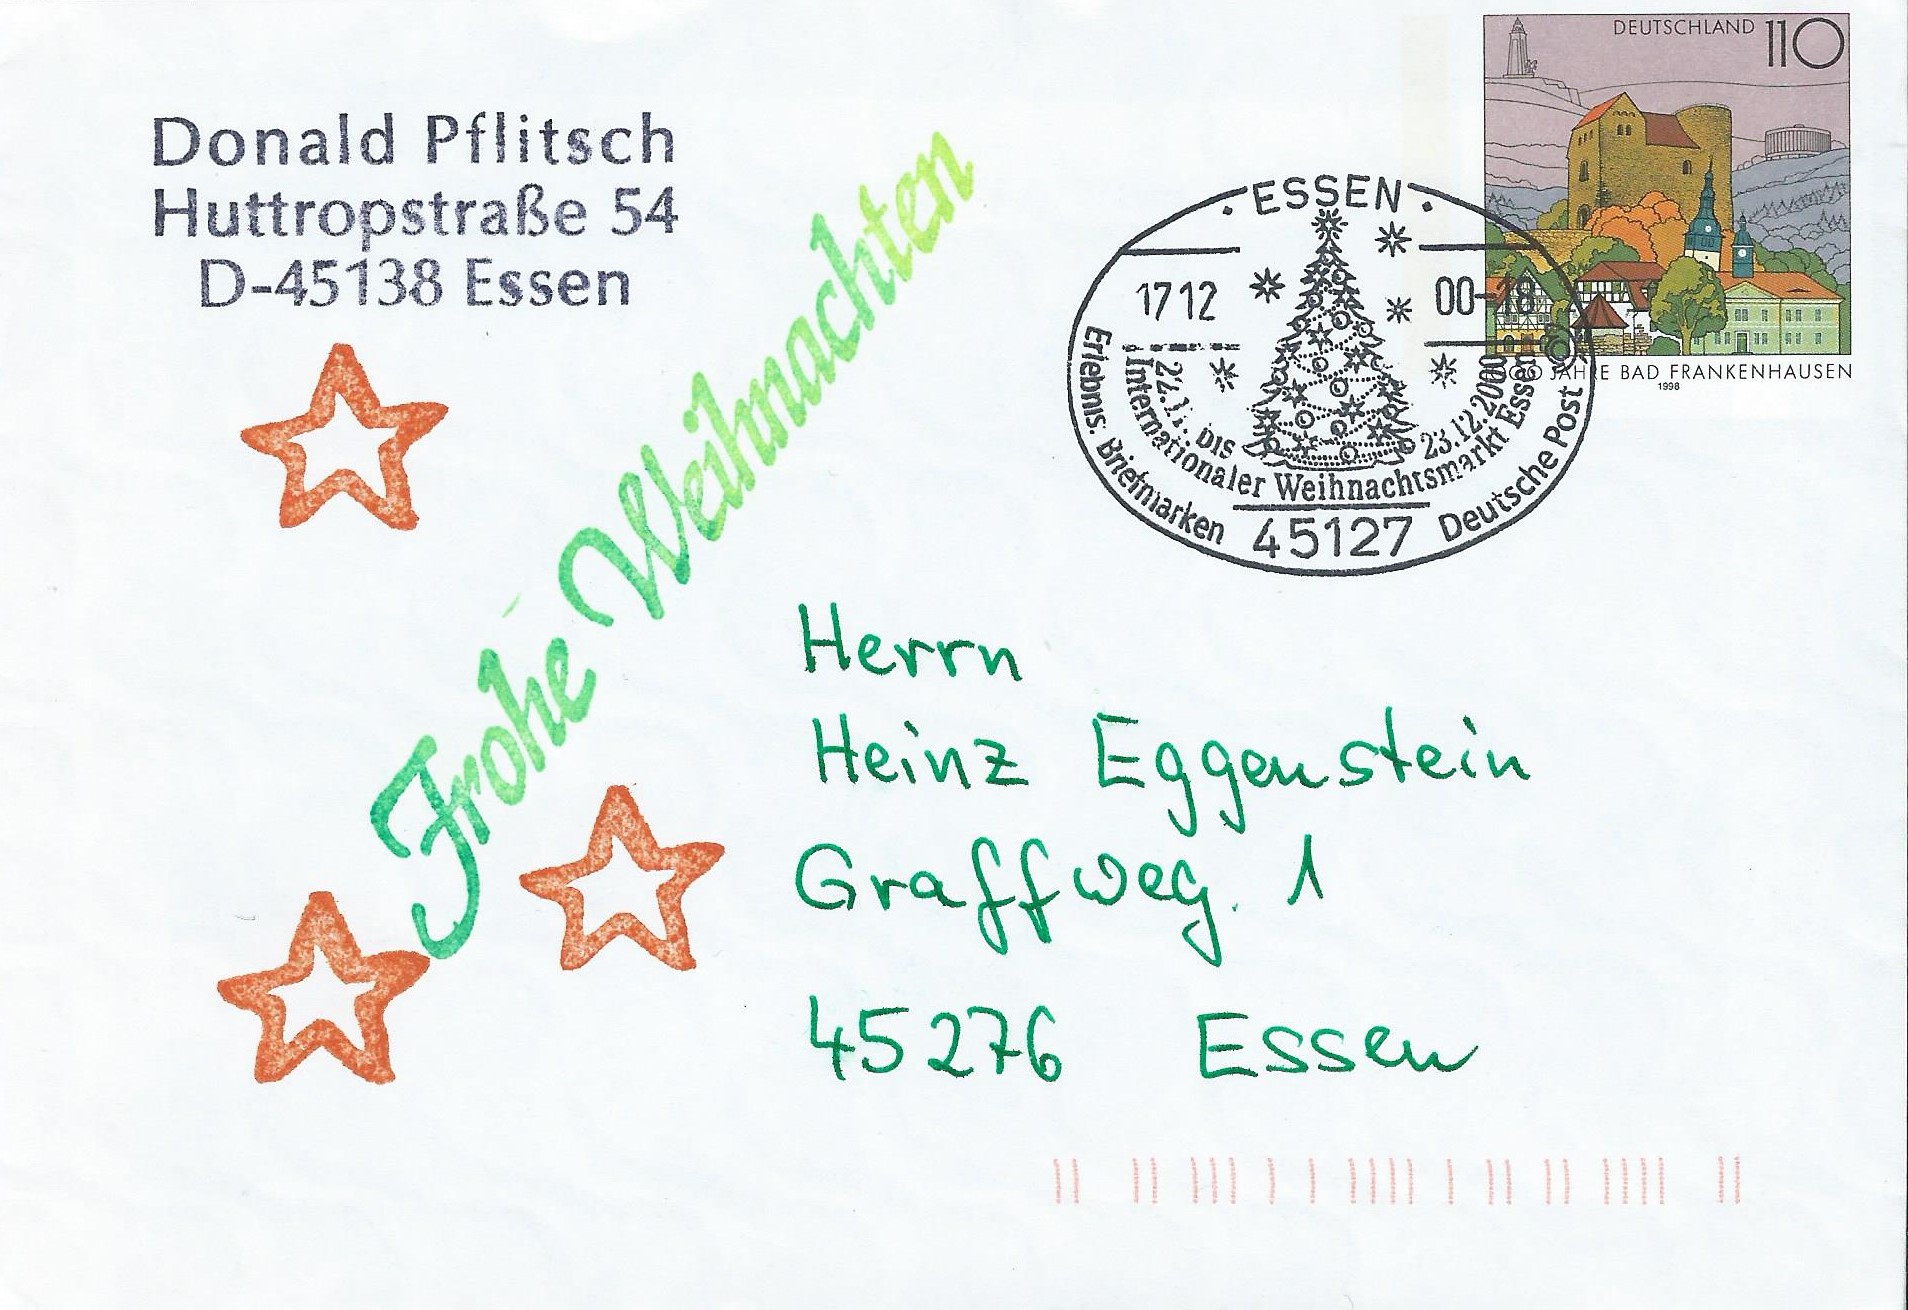 Donald Pflitsch
Huttropstraße 54
D-45138 Essen
Frohe Weihnachten
DEUTSCHLAND 110
JAHRE BAD FRANKENHAUSEN
1998
ESSEN
17 12
00-18
22.11. bis 23.12.2000
Internationaler Weihnachtsmarkt Essen
Erlebnis: Briefmarken
45127
Deutsche Post
Herrn
Heinz Eggenstein
Graffweg. 1
45276 Essen